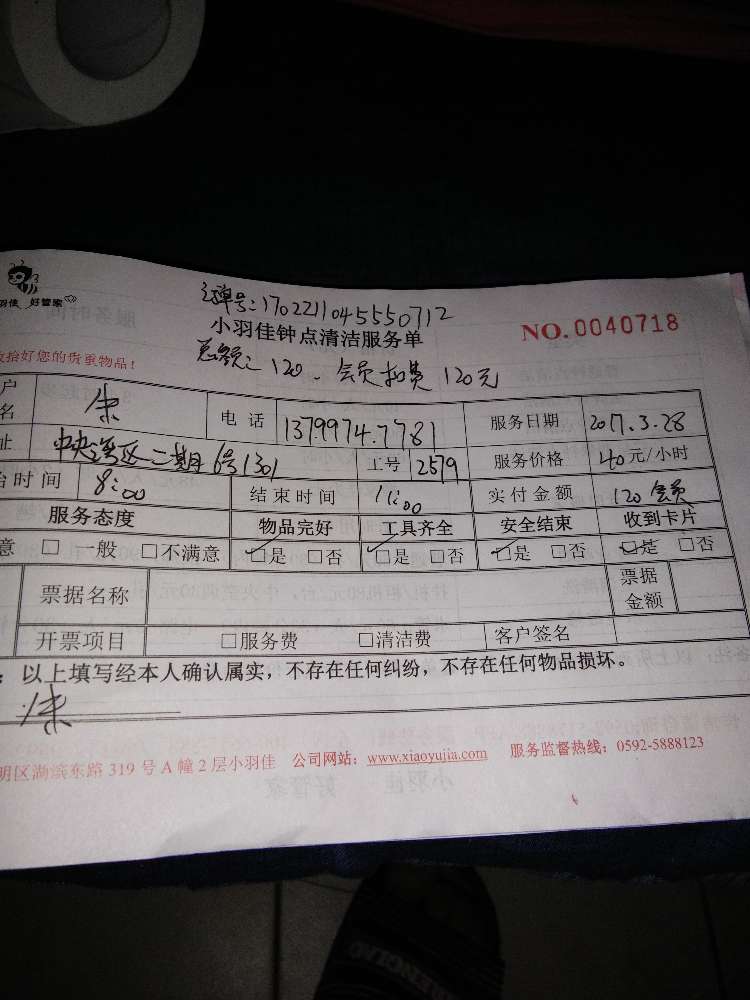 单号:170221045550712
羽佳 好管家
小羽佳钟点清洁服务单
NO.0040718
拾好您的贵重物品!
总额:120、会员扣费120元
户名 朱 电话 13799747781 服务日期 2017.3.28
址 中央 区二期6号1301 工号 2579 服务价格 40元/小时
时间 8:00 结束时间 11:00 实付金额 120会员
服务态度 物品完好 工具齐全 安全结束 收到卡片
意 □一般 □不满意 □是 □否 □是 □否 □是 □否 □是 □否
票据名称 票据金额
开票项目 □服务费 □清洁费 客户签名
:以上填写经本人确认属实,不存在任何纠纷,不存在任何物品损坏。
朱
明区湖滨东路319号A幢2层小羽佳 公司网站:www.xiaoyujia.com 服务监督热线:0592-5888123